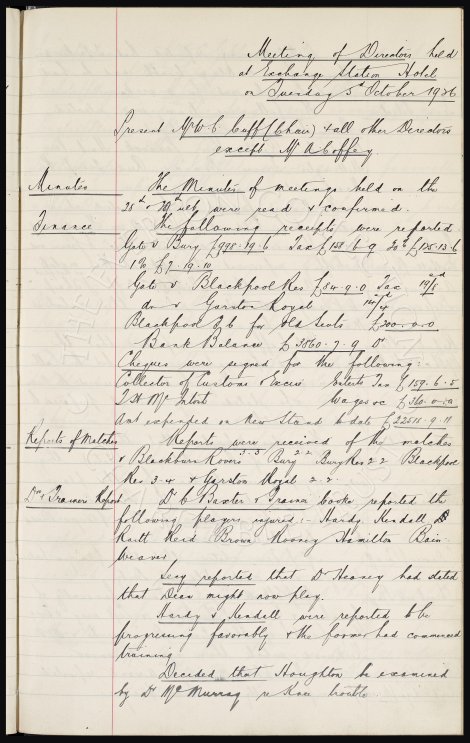 Meeting of Directors held
at Exchange Station Hotel
on Tuesday 5th October 1926
Present Mr W C Cuff (Chair) & all other Directors
except Mr A Coffey.
Minutes The Minutes of meetings held on the
28th & ult were read & confirmed.
Finance The following receipts were reported
Gate v Bury £998.19.6 Tax £158.6.9 20% £125.13.6
1% £7.19.10
Gate v Blackpool Res £84.9.0 Tax 19/8d
do v Garston Royal 14/4d
Blackpool F C for old Seats £200.0.0
Bank Balance £3860.7.9 Dr
Cheques were signed for the following:-
Collector of Customs & Excise Enterts Tax £159.6.5
Mc Intosh Wages &c £360.0.0
Amt expended on New Stand to date £22515.9.11
Reports of Matches Reports were received of the matches
v Blackburn Rovers 3.3 Bury 2 2 Bury Res 2 2 Blackpool
Res 3.4 & Garston Royal 2.2.
Drs & Trainers Report Dr C Baxter & Trainer Cooke reported the
following players injured:- Hardy, Kendall,
Raitt Reid Brown Rooney Hamilton Bain
Weaver
Secy reported that Dr Heaney had stated
that Dean might now play.
Hardy & Kendall were reported to be
progressing favorably & the former had commenced
training
Decided that Houghton be examined
by Dr McMurray re Knee trouble.